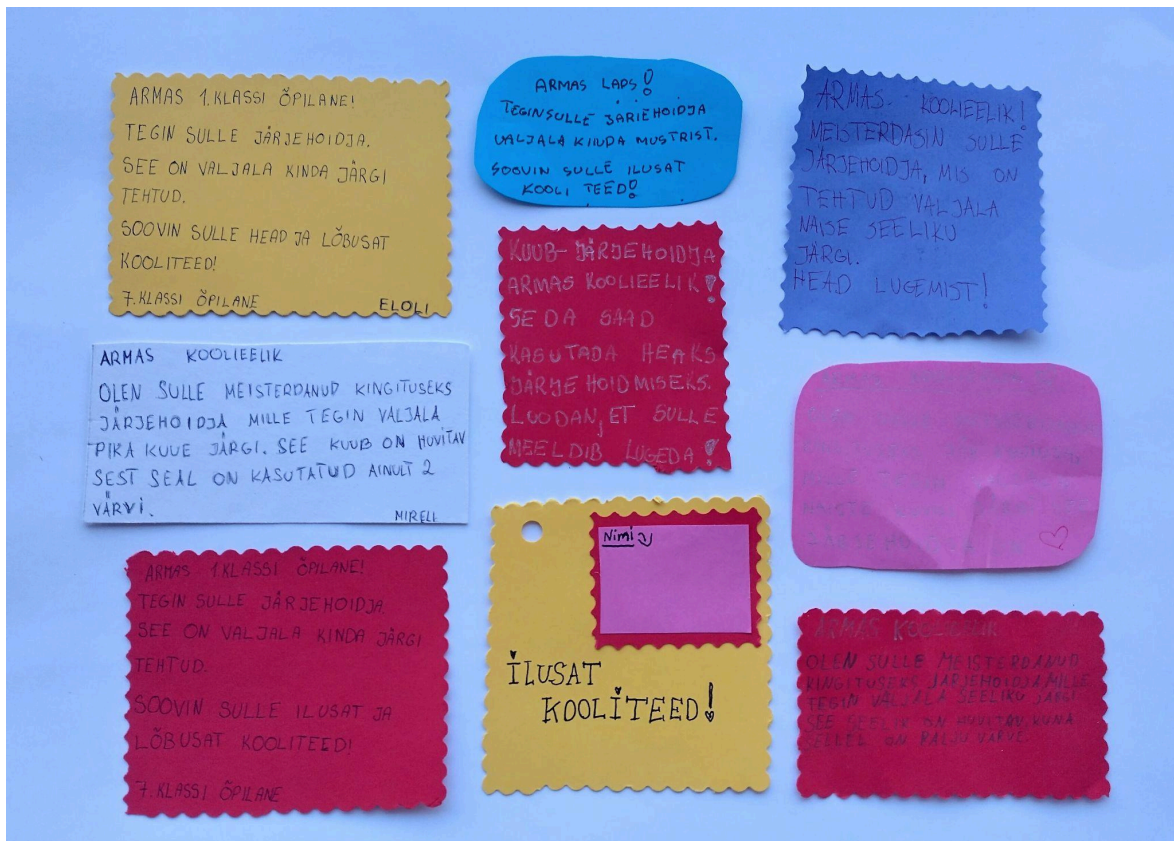 ARMAS 1.KLASSI ÕPILANE!
TEGIN SULLE JÄRJEHOIDJA.
SEE ON VALJALA KINDA JÄRGI
TEHTUD.
SOOVIN SULLE HEAD JA LÕBUSAT
KOOLITEED!
7.KLASSI ÕPILANE
ELOLI
ARMAS KOOLIEELIK
OLEN SULLE MEISTERDANUD KINGITUSEKS
JÄRJEHOIDJA MILLE TEGIN VALJALA
PIKA KUUE JÄRGI. SEE KUUB ON HUVITAV
SEST SEAL ON KASUTATUD AINULT 2
VÄRVI.
MIRELL
ARMAS 1KLASSI ÕPILANE!
TEGIN SULLE JÄRJEHOIDJA
SEE ON VALJALA KINDA JÄRGI
TEHTUD.
SOOVIN SULLE ILUSAT JA
LÕBUSAT KOOLITEED!
7.KLASSI ÕPILANE
ARMAS LAPS!
TEGINSULLE JÄRIEHOIDJA
VALJALA KINDA MUSTRIST.
SOOVIN SULLE ILUSAT
KOOLI TEED!
KUUB-JÄRJEHOIDJA
ARMAS KOOLIEELIK!
SEDA SAAD
KASUTADA HEAKS
JÄRJE HOIDMISEKS.
LOODAN, ET SULLE
MEELDIB LUGEDA!
Nimi
ILUSAT
KOOLITEED!
ARMAS KOOLIEELIK!
MEISTERDASIN SULLE
JÄRJEHOIDJA, MIS ON
TEHTUD VALJALA
NAISE SEELIKU
JÄRGI.
HEAD LUGEMIST!
ARMAS KOOLIEELIK
OLEN SULLE MEISTERDANUD
KINGITUSEKS JÄRJEHOIDJA, MILLE
TEGIN VALJALA SEELIKU JÄRGI
SEE SEELIK ON HUVITAV, KUNA
SELLEL ON PALJU VÄRVE.